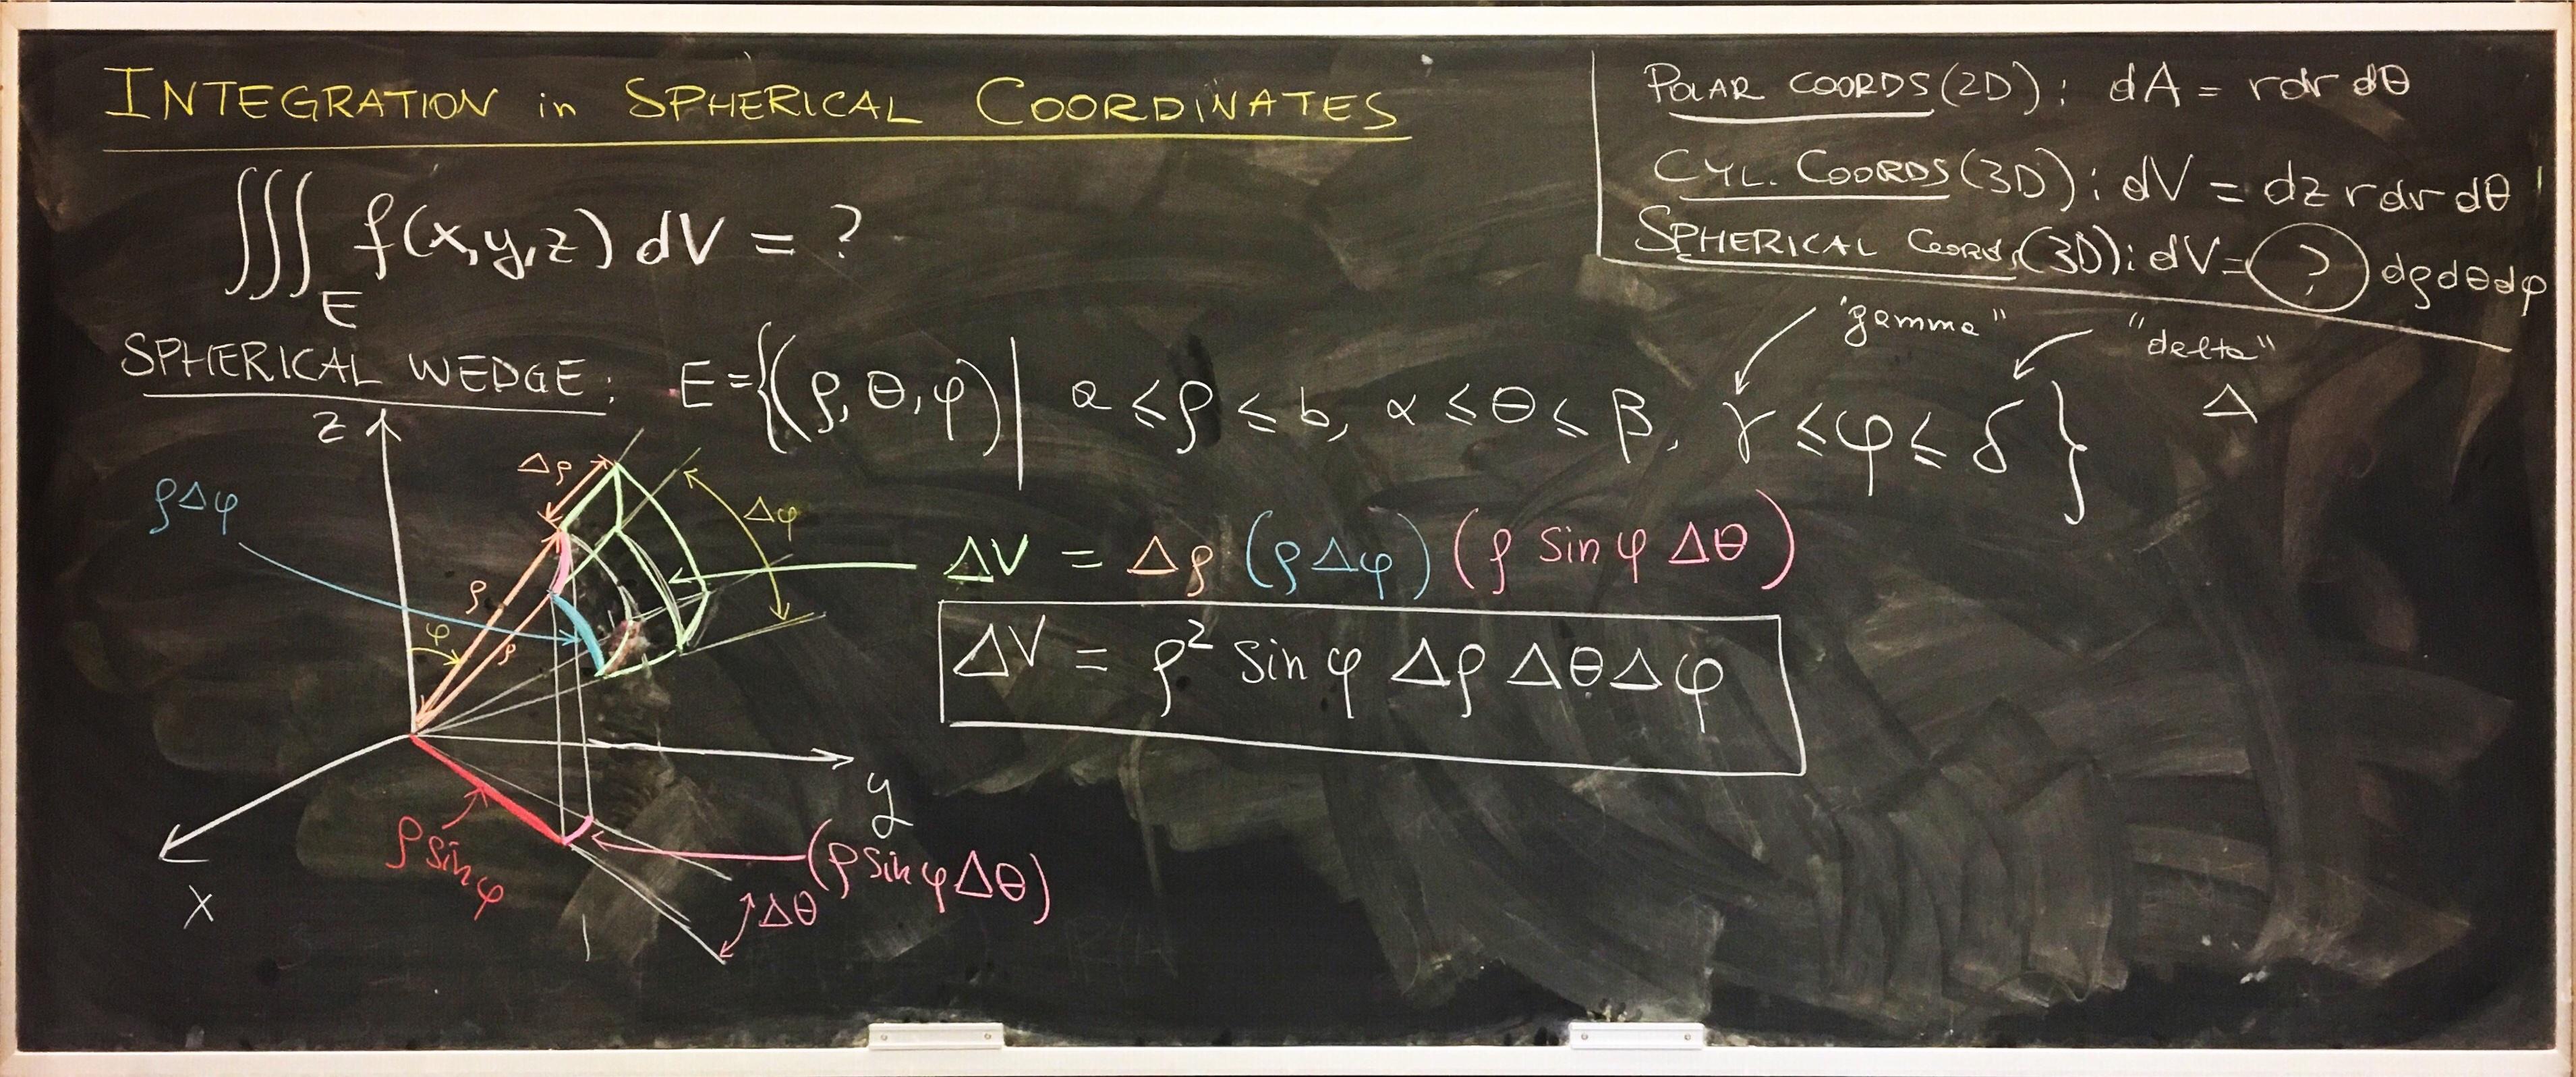 INTEGRATION in SPHERICAL COORDINATES
∭_E f(x,y,z) dV = ?
POLAR COORDS (2D): dA = r dr dθ
CYL. COORDS (3D): dV = dz r dr dθ
SPHERICAL COORDS (3D): dV = ? dρ dθ dφ
"gamma"
"delta"
Δ
SPHERICAL WEDGE: E = {(ρ, θ, φ) | a ≤ ρ ≤ b, α ≤ θ ≤ β, γ ≤ φ ≤ δ}
z
Δρ
ρΔφ
Δφ
ρ
φ
ρ
x
y
ρ sin φ
(ρ sin φ Δθ)
Δθ
ΔV = Δρ (ρΔφ) (ρ sin φ Δθ)
ΔV = ρ² sin φ Δρ Δθ Δφ